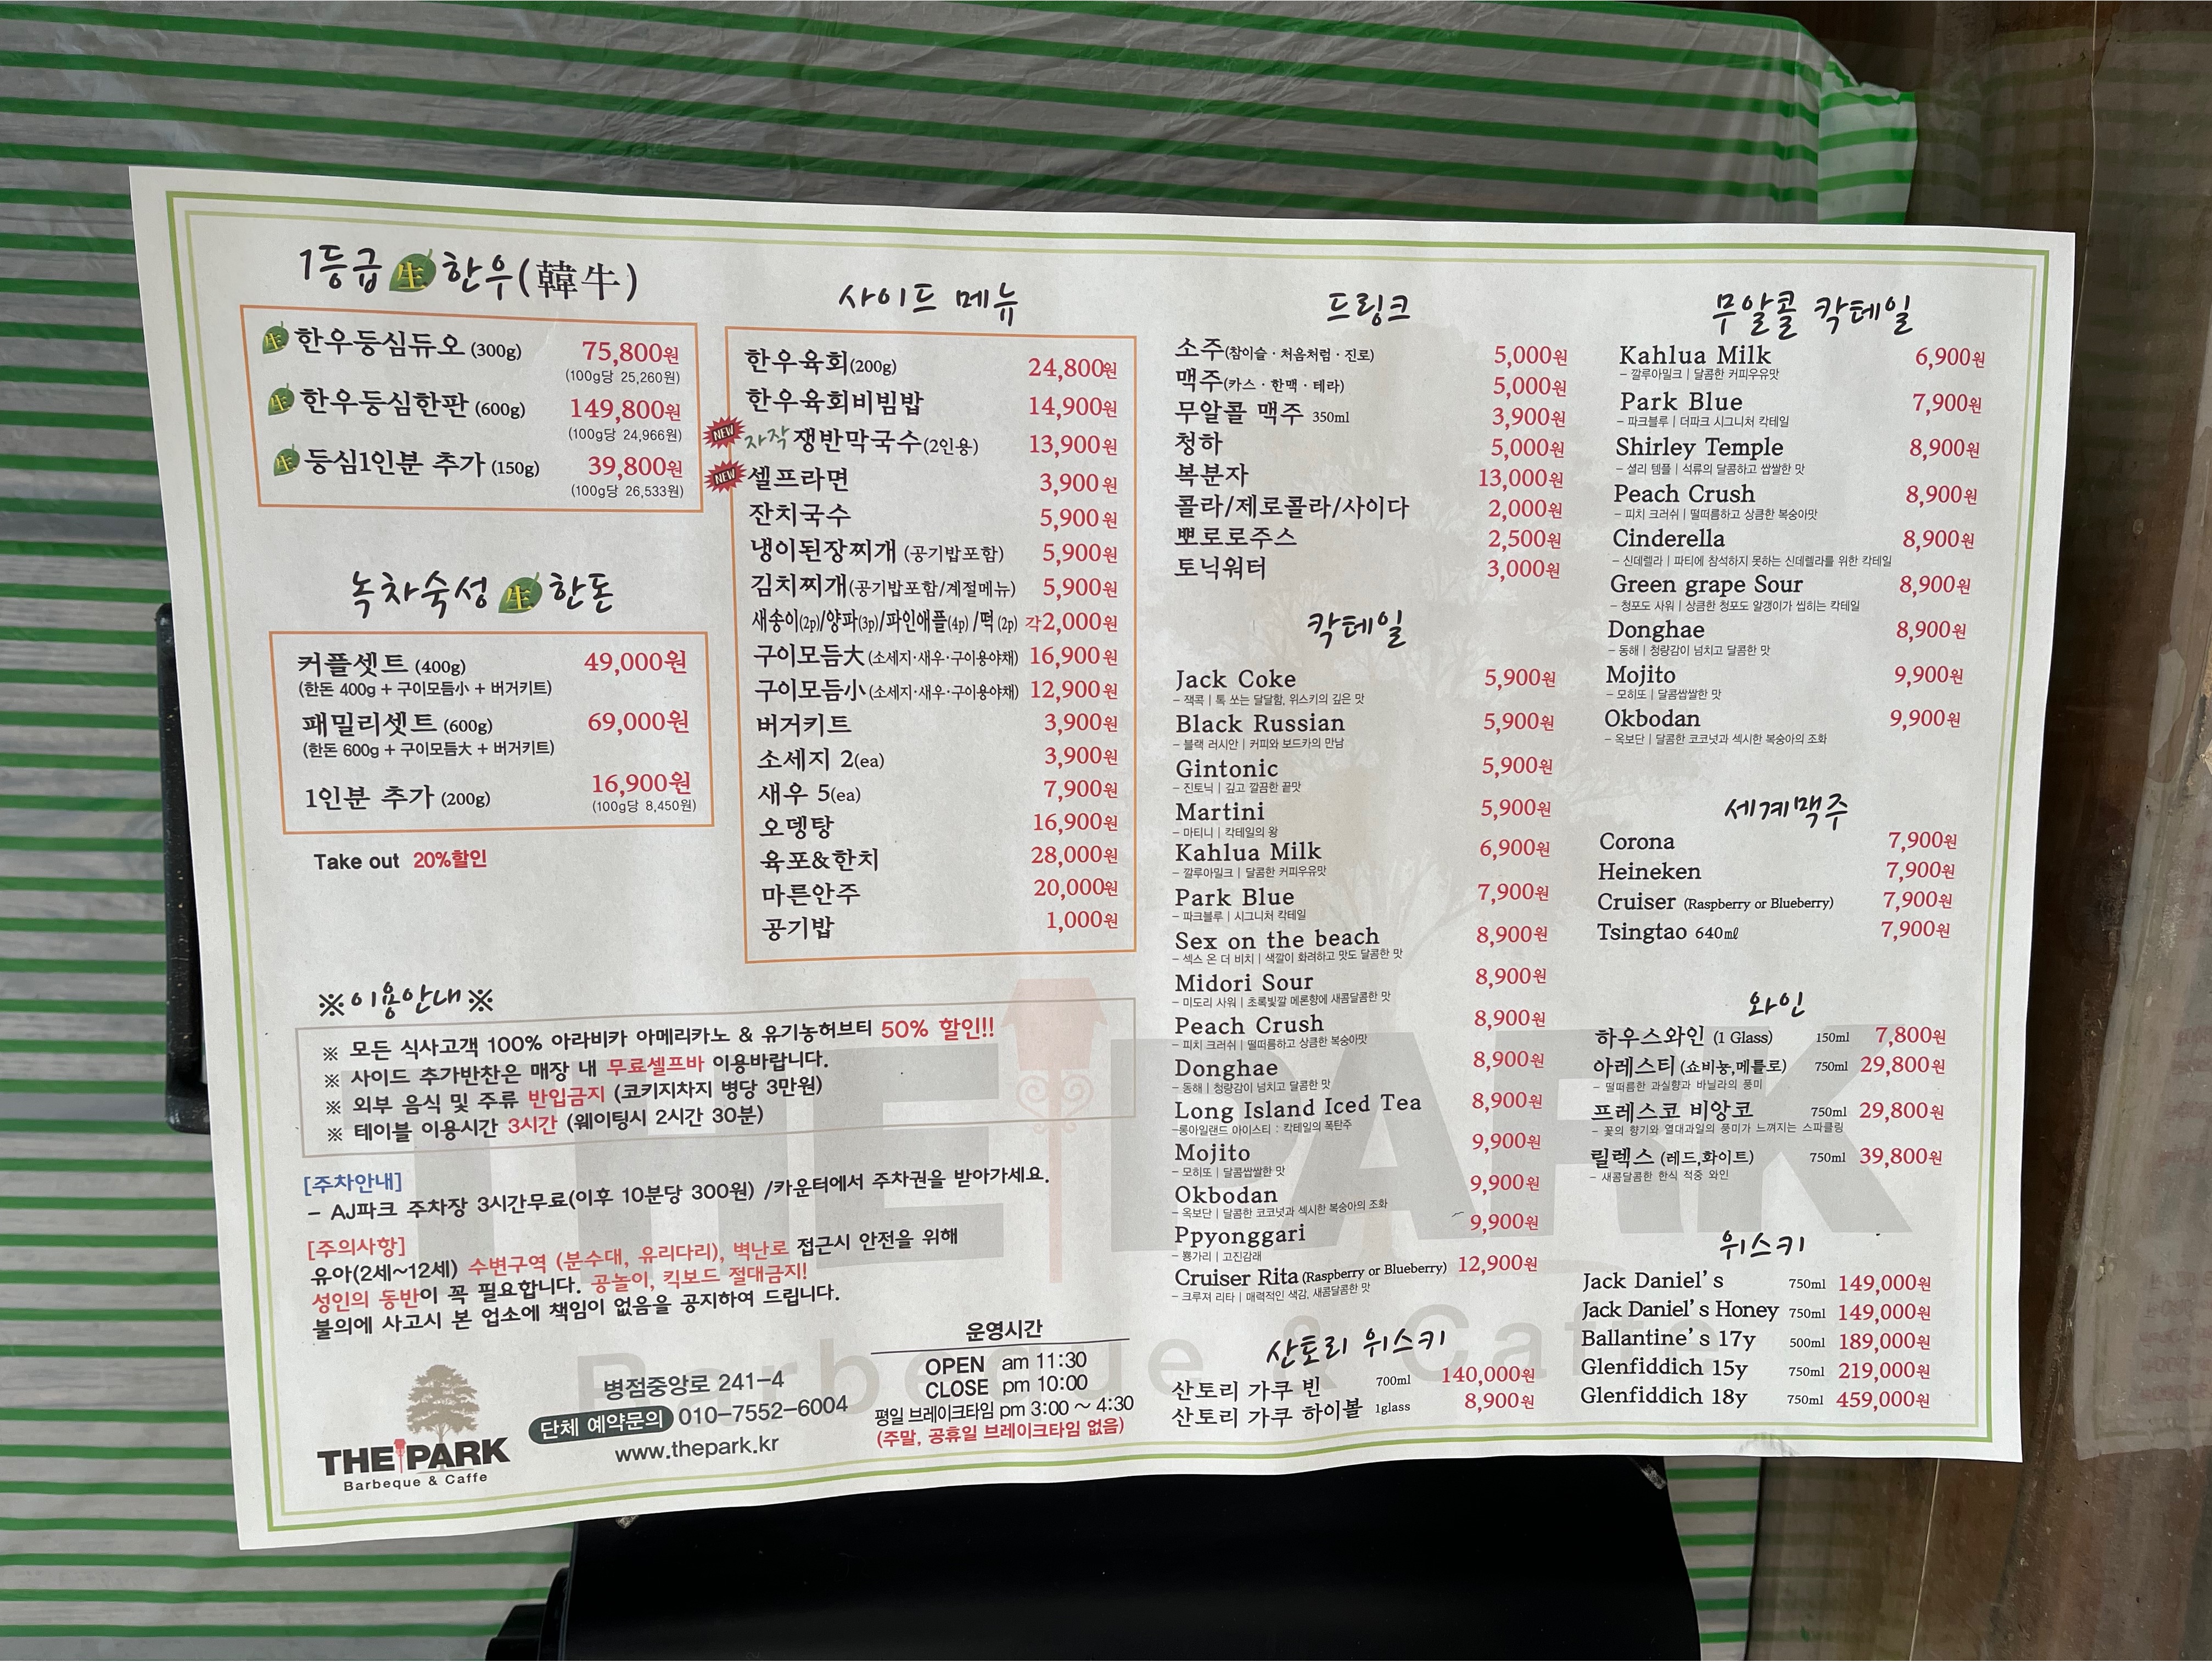 1등급 生 한우(韓牛)
生 한우등심듀오 (300g) 75,800원
(100g당 25,260원)
生 한우등심한판 (600g) 149,800원
(100g당 24,966원)
生 등심1인분 추가 (150g) 39,800원
(100g당 26,533원)
녹차숙성 生 한돈
커플셋트 (400g) 49,000원
(한돈 400g + 구이모듬小 + 버거키트)
패밀리셋트 (600g) 69,000원
(한돈 600g + 구이모듬大 + 버거키트)
1인분 추가 (200g) 16,900원
(100g당 8,450원)
Take out 20%할인
사이드 메뉴
한우육회(200g) 24,800원
한우육회비빔밥 14,900원
NEW 자작 쟁반막국수(2인용) 13,900원
NEW 셀프라면 3,900원
잔치국수 5,900원
냉이된장찌개 (공기밥포함) 5,900원
김치찌개(공기밥포함/계절메뉴) 5,900원
새송이(2p)/양파(3p)/파인애플(4p) /떡 (2p) 각2,000원
구이모듬大 (소세지·새우·구이용야채) 16,900원
구이모듬小 (소세지·새우·구이용야채) 12,900원
버거키트 3,900원
소세지 2(ea) 3,900원
새우 5(ea) 7,900원
오뎅탕 16,900원
육포&한치 28,000원
마른안주 20,000원
공기밥 1,000원
※이용안내※
※ 모든 식사고객 100% 아라비카 아메리카노 & 유기농허브티 50% 할인!!
※ 사이드 추가반찬은 매장 내 무료셀프바 이용바랍니다.
※ 외부 음식 및 주류 반입금지 (코키지차지 병당 3만원)
※ 테이블 이용시간 3시간 (웨이팅시 2시간 30분)
[주차안내]
- AJ파크 주차장 3시간무료(이후 10분당 300원) /카운터에서 주차권을 받아가세요.
[주의사항]
유아(2세~12세) 수변구역 (분수대, 유리다리), 벽난로 접근시 안전을 위해
성인의 동반이 꼭 필요합니다. 공놀이, 킥보드 절대금지!
불의에 사고시 본 업소에 책임이 없음을 공지하여 드립니다.
THE PARK
Barbeque & Caffe
병점중앙로 241-4
단체 예약문의 010-7552-6004
www.thepark.kr
운영시간
OPEN am 11:30
CLOSE pm 10:00
평일 브레이크타임 pm 3:00 ~ 4:30
(주말, 공휴일 브레이크타임 없음)
드링크
소주(참이슬 · 처음처럼 · 진로) 5,000원
맥주(카스 · 한맥 · 테라) 5,000원
무알콜 맥주 350ml 3,900원
청하 5,000원
복분자 13,000원
콜라/제로콜라/사이다 2,000원
뽀로로주스 2,500원
토닉워터 3,000원
칵테일
Jack Coke 5,900원
- 잭콕 | 톡 쏘는 달달함, 위스키의 깊은 맛
Black Russian 5,900원
- 블랙 러시안 | 커피와 보드카의 만남
Gintonic 5,900원
- 진토닉 | 깊고 깔끔한 끝맛
Martini 5,900원
- 마티니 | 칵테일의 왕
Kahlua Milk 6,900원
- 깔루아밀크 | 달콤한 커피우유맛
Park Blue 7,900원
- 파크블루 | 시그니처 칵테일
Sex on the beach 8,900원
- 섹스 온 더 비치 | 색깔이 화려하고 맛도 달콤한 맛
Midori Sour 8,900원
- 미도리 사워 | 초록빛깔 메론향에 새콤달콤한 맛
Peach Crush 8,900원
- 피치 크러쉬 | 떨떠름하고 상큼한 복숭아맛
Donghae 8,900원
- 동해 | 청량감이 넘치고 달콤한 맛
Long Island Iced Tea 8,900원
-롱아일랜드 아이스티 : 칵테일의 폭탄주
Mojito 9,900원
- 모히또 | 달콤쌉쌀한 맛
Okbodan 9,900원
- 옥보단 | 달콤한 코코넛과 섹시한 복숭아의 조화
Ppyonggari 9,900원
- 뿅가리 | 고진감래
Cruiser Rita (Raspberry or Blueberry) 12,900원
- 크루져 리타 | 매력적인 색감, 새콤달콤한 맛
산토리 위스키
산토리 가쿠 빈 700ml 140,000원
산토리 가쿠 하이볼 1glass 8,900원
무알콜 칵테일
Kahlua Milk 6,900원
- 깔루아밀크 | 달콤한 커피우유맛
Park Blue 7,900원
- 파크블루 | 더파크 시그니처 칵테일
Shirley Temple 8,900원
- 셜리 템플 | 석류의 달콤하고 쌉쌀한 맛
Peach Crush 8,900원
- 피치 크러쉬 | 떨떠름하고 상큼한 복숭아맛
Cinderella 8,900원
- 신데렐라 | 파티에 참석하지 못하는 신데렐라를 위한 칵테일
Green grape Sour 8,900원
- 청포도 사워 | 상큼한 청포도 알갱이가 씹히는 칵테일
Donghae 8,900원
- 동해 | 청량감이 넘치고 달콤한 맛
Mojito 9,900원
- 모히또 | 달콤쌉쌀한 맛
Okbodan 9,900원
- 옥보단 | 달콤한 코코넛과 섹시한 복숭아의 조화
세계맥주
Corona 7,900원
Heineken 7,900원
Cruiser (Raspberry or Blueberry) 7,900원
Tsingtao 640㎖ 7,900원
와인
하우스와인 (1 Glass) 150ml 7,800원
아레스티 (쇼비뇽,메를로) 750ml 29,800원
- 떨떠름한 과실향과 바닐라의 풍미
프레스코 비앙코 750ml 29,800원
- 꽃의 향기와 열대과일의 풍미가 느껴지는 스파클링
릴렉스 (레드,화이트) 750ml 39,800원
- 새콤달콤한 한식 적중 와인
위스키
Jack Daniel's 750ml 149,000원
Jack Daniel's Honey 750ml 149,000원
Ballantine's 17y 500ml 189,000원
Glenfiddich 15y 750ml 219,000원
Glenfiddich 18y 750ml 459,000원
THE PARK
Barbeque & Caffe